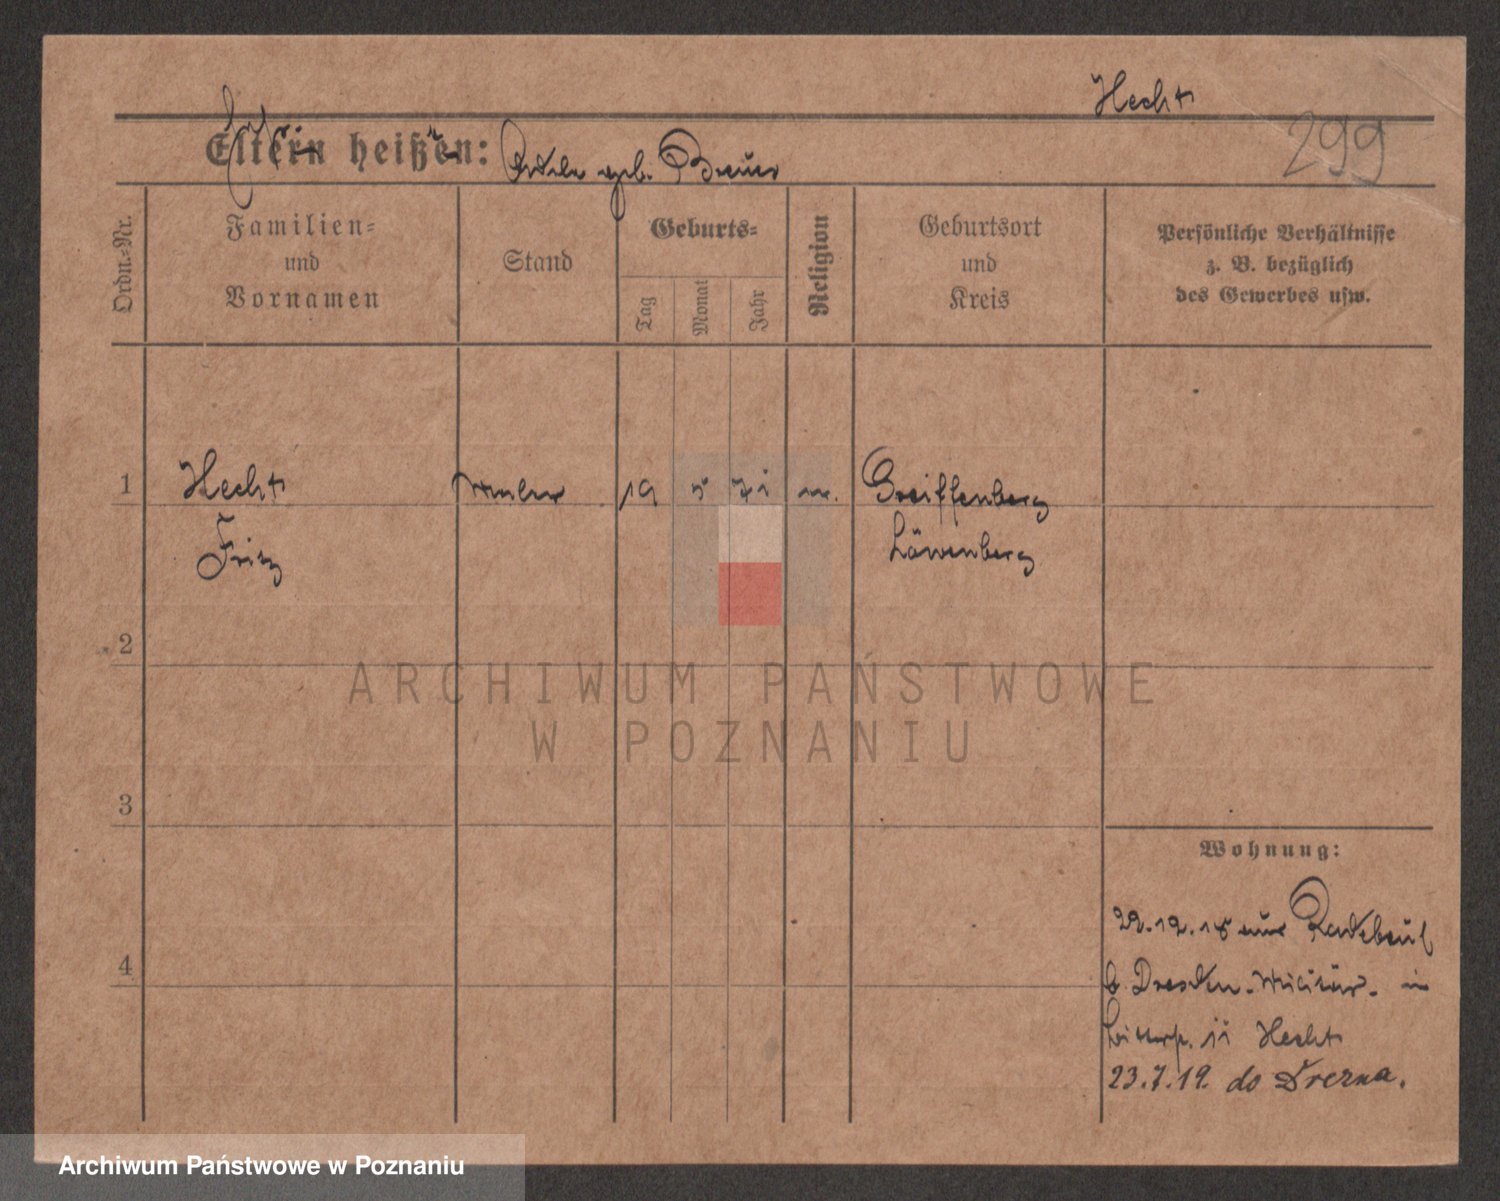 Hecht
299
Eltern heißen: Adele geb. Breuer
Ordn.-Nr.
Familien-
und
Vornamen
Stand
Geburts-
Tag
Monat
Jahr
Religion
Geburtsort
und
Kreis
Persönliche Verhältnisse
z. B. bezüglich
des Gewerbes usw.
1 Hecht Maler 19 5 71 m. Greiffenberg
Fritz Löwenberg
2
ARCHIWUM PAŃSTWOWE
W POZNANIU
3
Wohnung:
22.12.18 aus Radebeul
4
b. Dresden - Militär - in
11 Hecht
23.7.19. do Drezna.
Archiwum Państwowe w Poznaniu